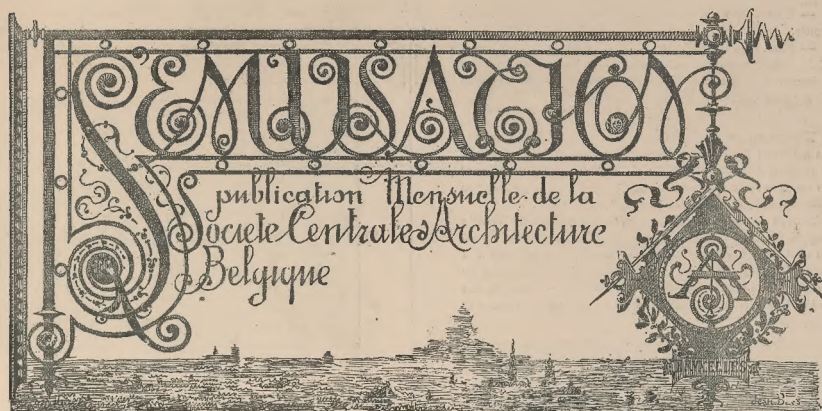 L'EMULATION
publication Mensuelle de la
Societe Centrale d'Architecture
Belgique
BRVXELLES
Jean Baes